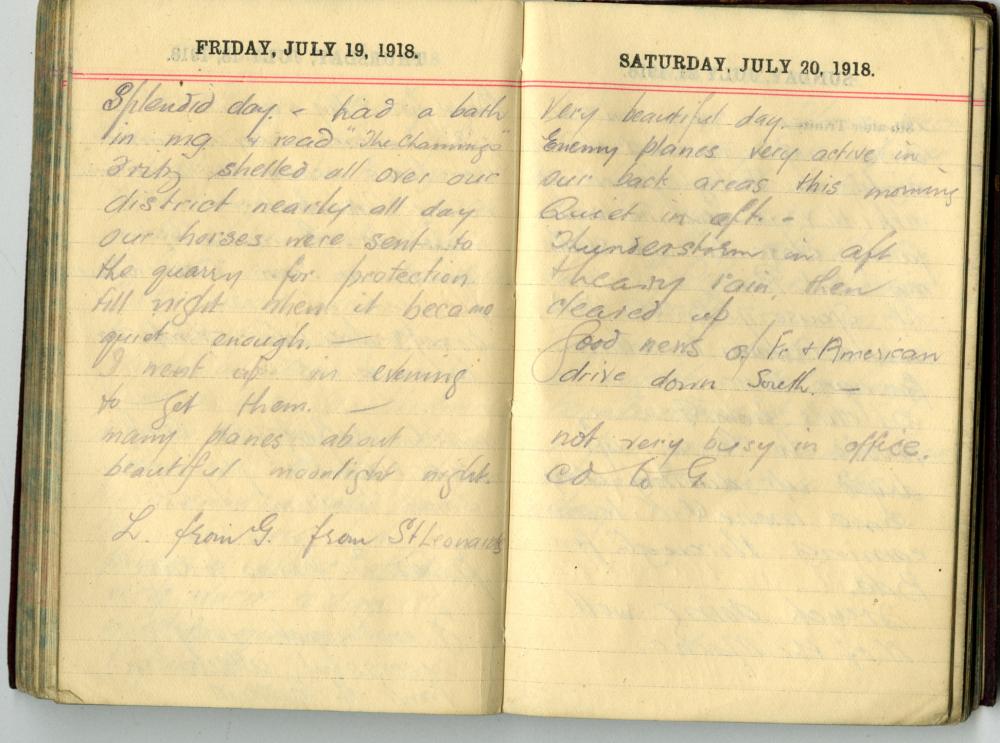 FRIDAY, JULY 19, 1918.
Splendid day. - had a bath
in mg & read "The Channings"
Fritz shelled all over our
district nearly all day
our horses were sent to
the quarry for protection
till night when it became
quiet enough. —
I went up in evening
to get them. —
many planes about
beautiful moonlight night.
L. from G. from St Leonards
SATURDAY, JULY 20, 1918.
Very beautiful day. -
Enemy planes very active in
our back areas this morning
Quiet in aft. -
Thunderstorm in aft
& heavy rain, then
cleared up
Good news of Fr. & American
drive down South. —
not very busy in office.
Cd to G.